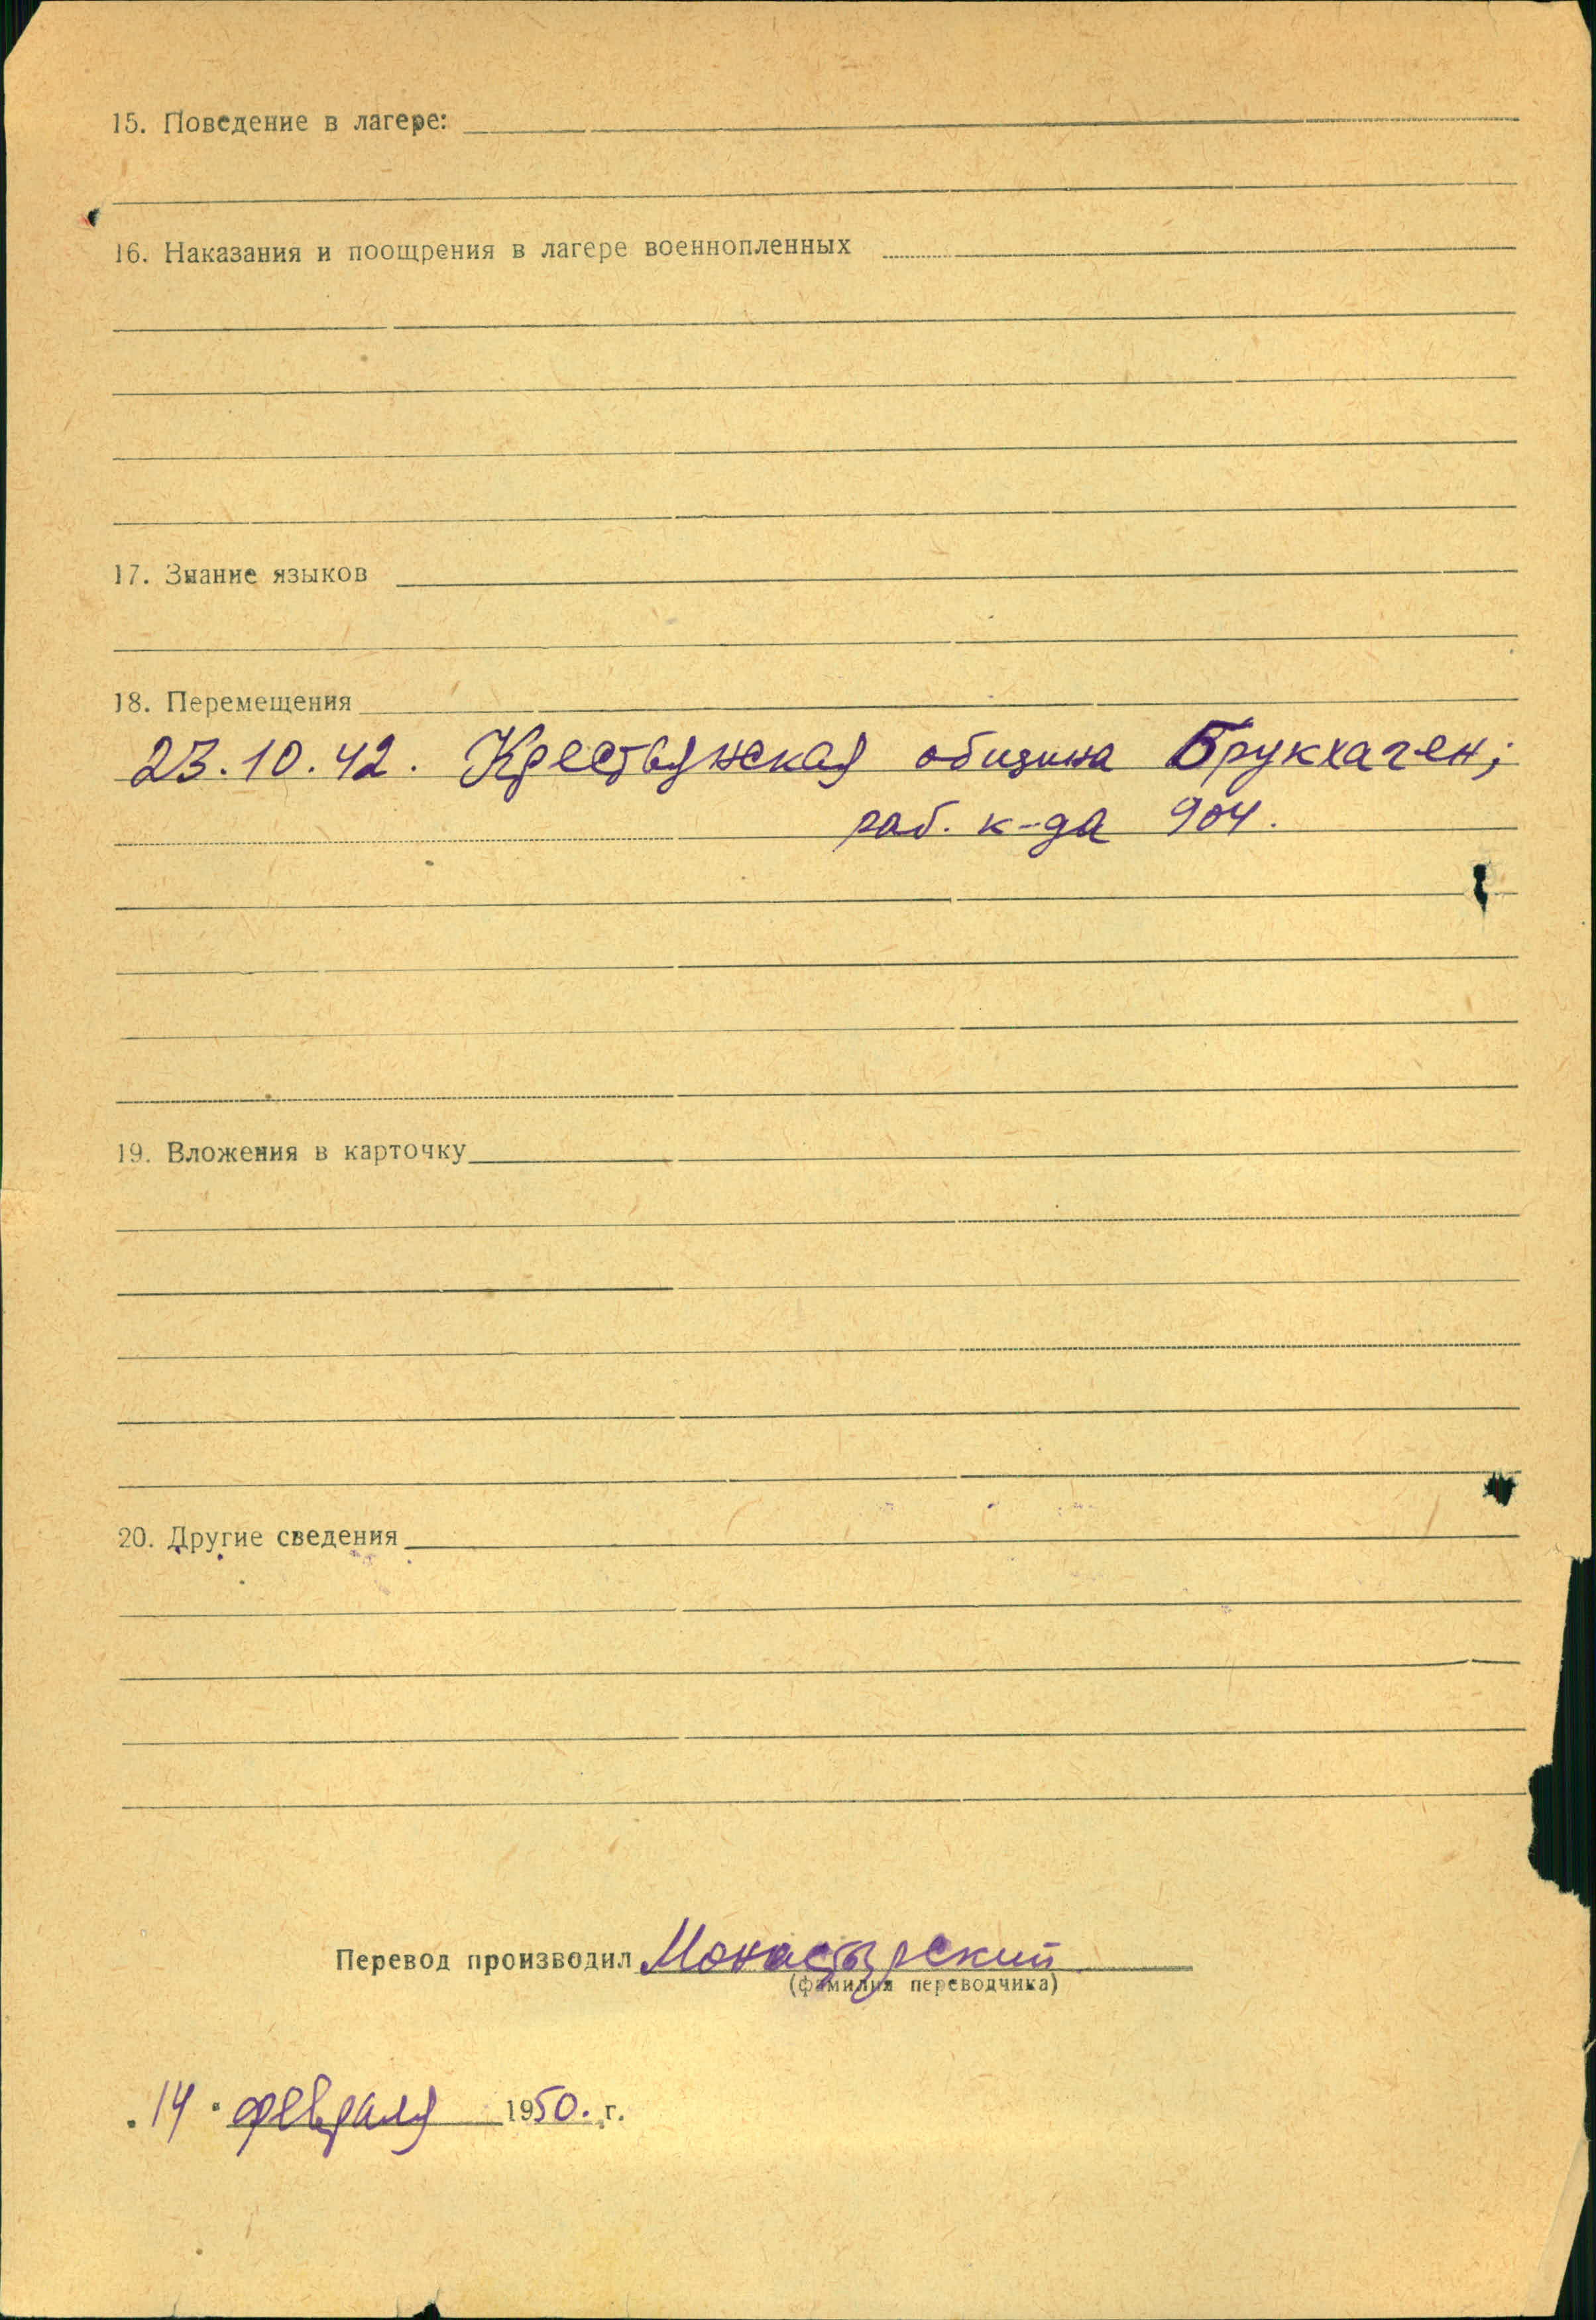 15. Поведение в лагере:
16. Наказания и поощрения в лагере военнопленных
17. Знание языков
18. Перемещения
23.10.42. Крестьянская община Брукхаген;
раб. к-да 904.
19. Вложения в карточку
20. Другие сведения
Перевод производил Монастырский
(фамилия переводчика)
"14" февраля 1950. г.